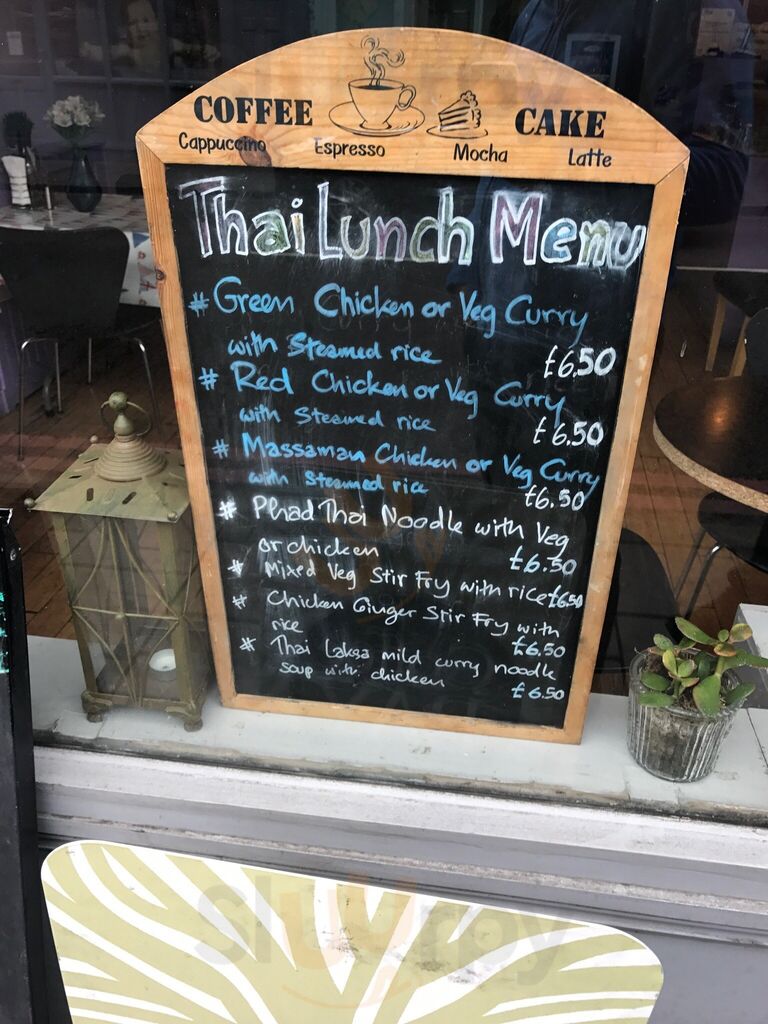 COFFEE CAKE
Cappuccino Espresso Mocha Latte
Thai Lunch Menu
# Green Chicken or Veg Curry
with Steamed rice £6.50
# Red Chicken or Veg Curry
with Steamed rice £6.50
# Massaman Chicken or Veg Curry
with Steamed rice £6.50
# Phad Thai Noodle with Veg
or chicken £6.50
# Mixed Veg Stir Fry with rice £6.50
# Chicken Ginger Stir Fry with
rice £6.50
# Thai Laksa mild curry noodle
soup with chicken £6.50
Sluurpy